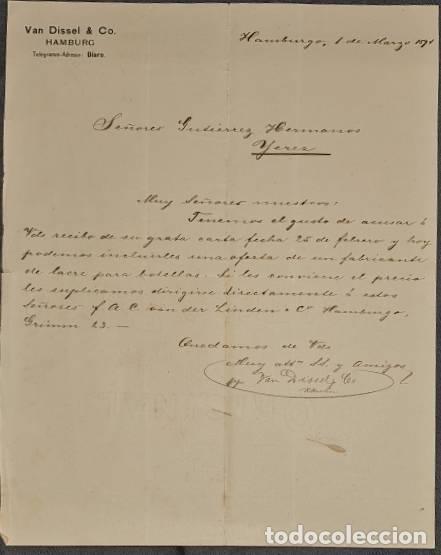 Van Dissel & Co.
HAMBURG
Telegramm-Adresse: Disro.
Hamburgo, 1 de Marzo 1891
Señores Gutierrez Hermanos
Yerez
Muy Señores nuestros:
Tenemos el gusto de acusar á
Vds recibo de su grata carta fecha 25 de febrero y hoy
podemos incluirles una oferta de un fabricante
de lacre para botellas. Si les conviene el precio
les suplicamos dirigirse directamente á estos
Señores f A C van der Linden & Co Hamburgo,
Grimm 23. —
Quedamos de Vds
Muy attos Ss. y Amigos
pp Van Dissel & Co
todocoleccion.net